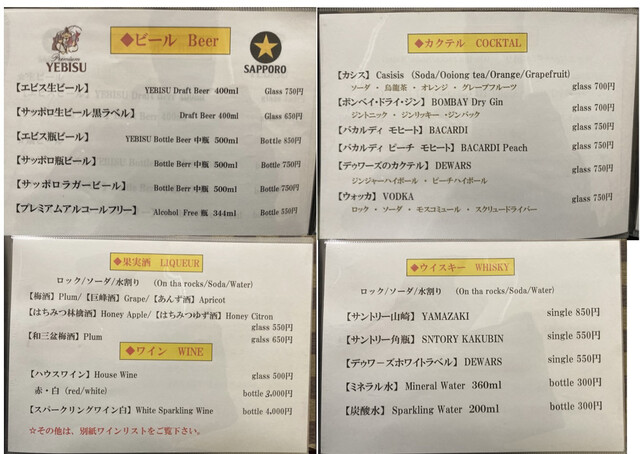 ◆ビール Beer
Premium
YEBISU
SAPPORO
【エビス生ビール】 YEBISU Draft Beer 400ml Glass 750円
【サッポロ生ビール黒ラベル】 Draft Beer 400ml Glass 650円
【エビス瓶ビール】 YEBISU Bottle Beer 中瓶 500ml Bottle 850円
【サッポロ瓶ビール】 Bottle Beer 中瓶 500ml Bottle 750円
【サッポロラガービール】 Bottle Berr 中瓶 500ml Bottle 750円
【プレミアムアルコールフリー】 Alcohol Free 瓶 344ml Bottle 550円
◆カクテル COCKTAL
【カシス】 Casisis (Soda/Ooiong tea/Orange/Grapefruit)
ソーダ ・ 烏龍茶 ・ オレンジ ・ グレープフルーツ glass 700円
【ボンベイ・ドライ・ジン】 BOMBAY Dry Gin glass 700円
ジントニック ・ ジンリッキー ・ジンバック
【バカルディ モヒート】 BACARDI glass 750円
【バカルディ ピーチ モヒート】 BACARDI Peach glass 750円
【デゥワーズのカクテル】 DEWARS glass 750円
ジンジャーハイボール ・ ピーチハイボール
【ウォッカ】 VODKA glass 750円
ロック ・ ソーダ ・ モスコミュール ・ スクリュードライバー
◆果実酒 LIQUEUR
ロック/ソーダ/水割り (On tha rocks/Soda/Water)
【梅酒】Plum/【巨峰酒】Grape/【あんず酒】Apricot
【はちみつ林檎酒】Honey Apple/【はちみつゆず酒】Honey Citron
glass 550円
【和三盆梅酒】Plum galss 650円
◆ワイン WINE
【ハウスワイン】House Wine glass 500円
赤・白 (red/white) bottle 3,000円
【スパークリングワイン白】White Sparkling Wine bottle 4,000円
☆その他は、別紙ワインリストをご覧下さい。
◆ウイスキー WHISKY
ロック/ソーダ/水割り (On tha rocks/Soda/Water)
【サントリー山崎】 YAMAZAKI single 850円
【サントリー角瓶】 SNTORY KAKUBIN single 550円
【デゥワーズホワイトラベル】 DEWARS single 550円
【ミネラル水】 Mineral Water 360ml bottle 300円
【炭酸水】 Sparkling Water 200ml bottle 300円